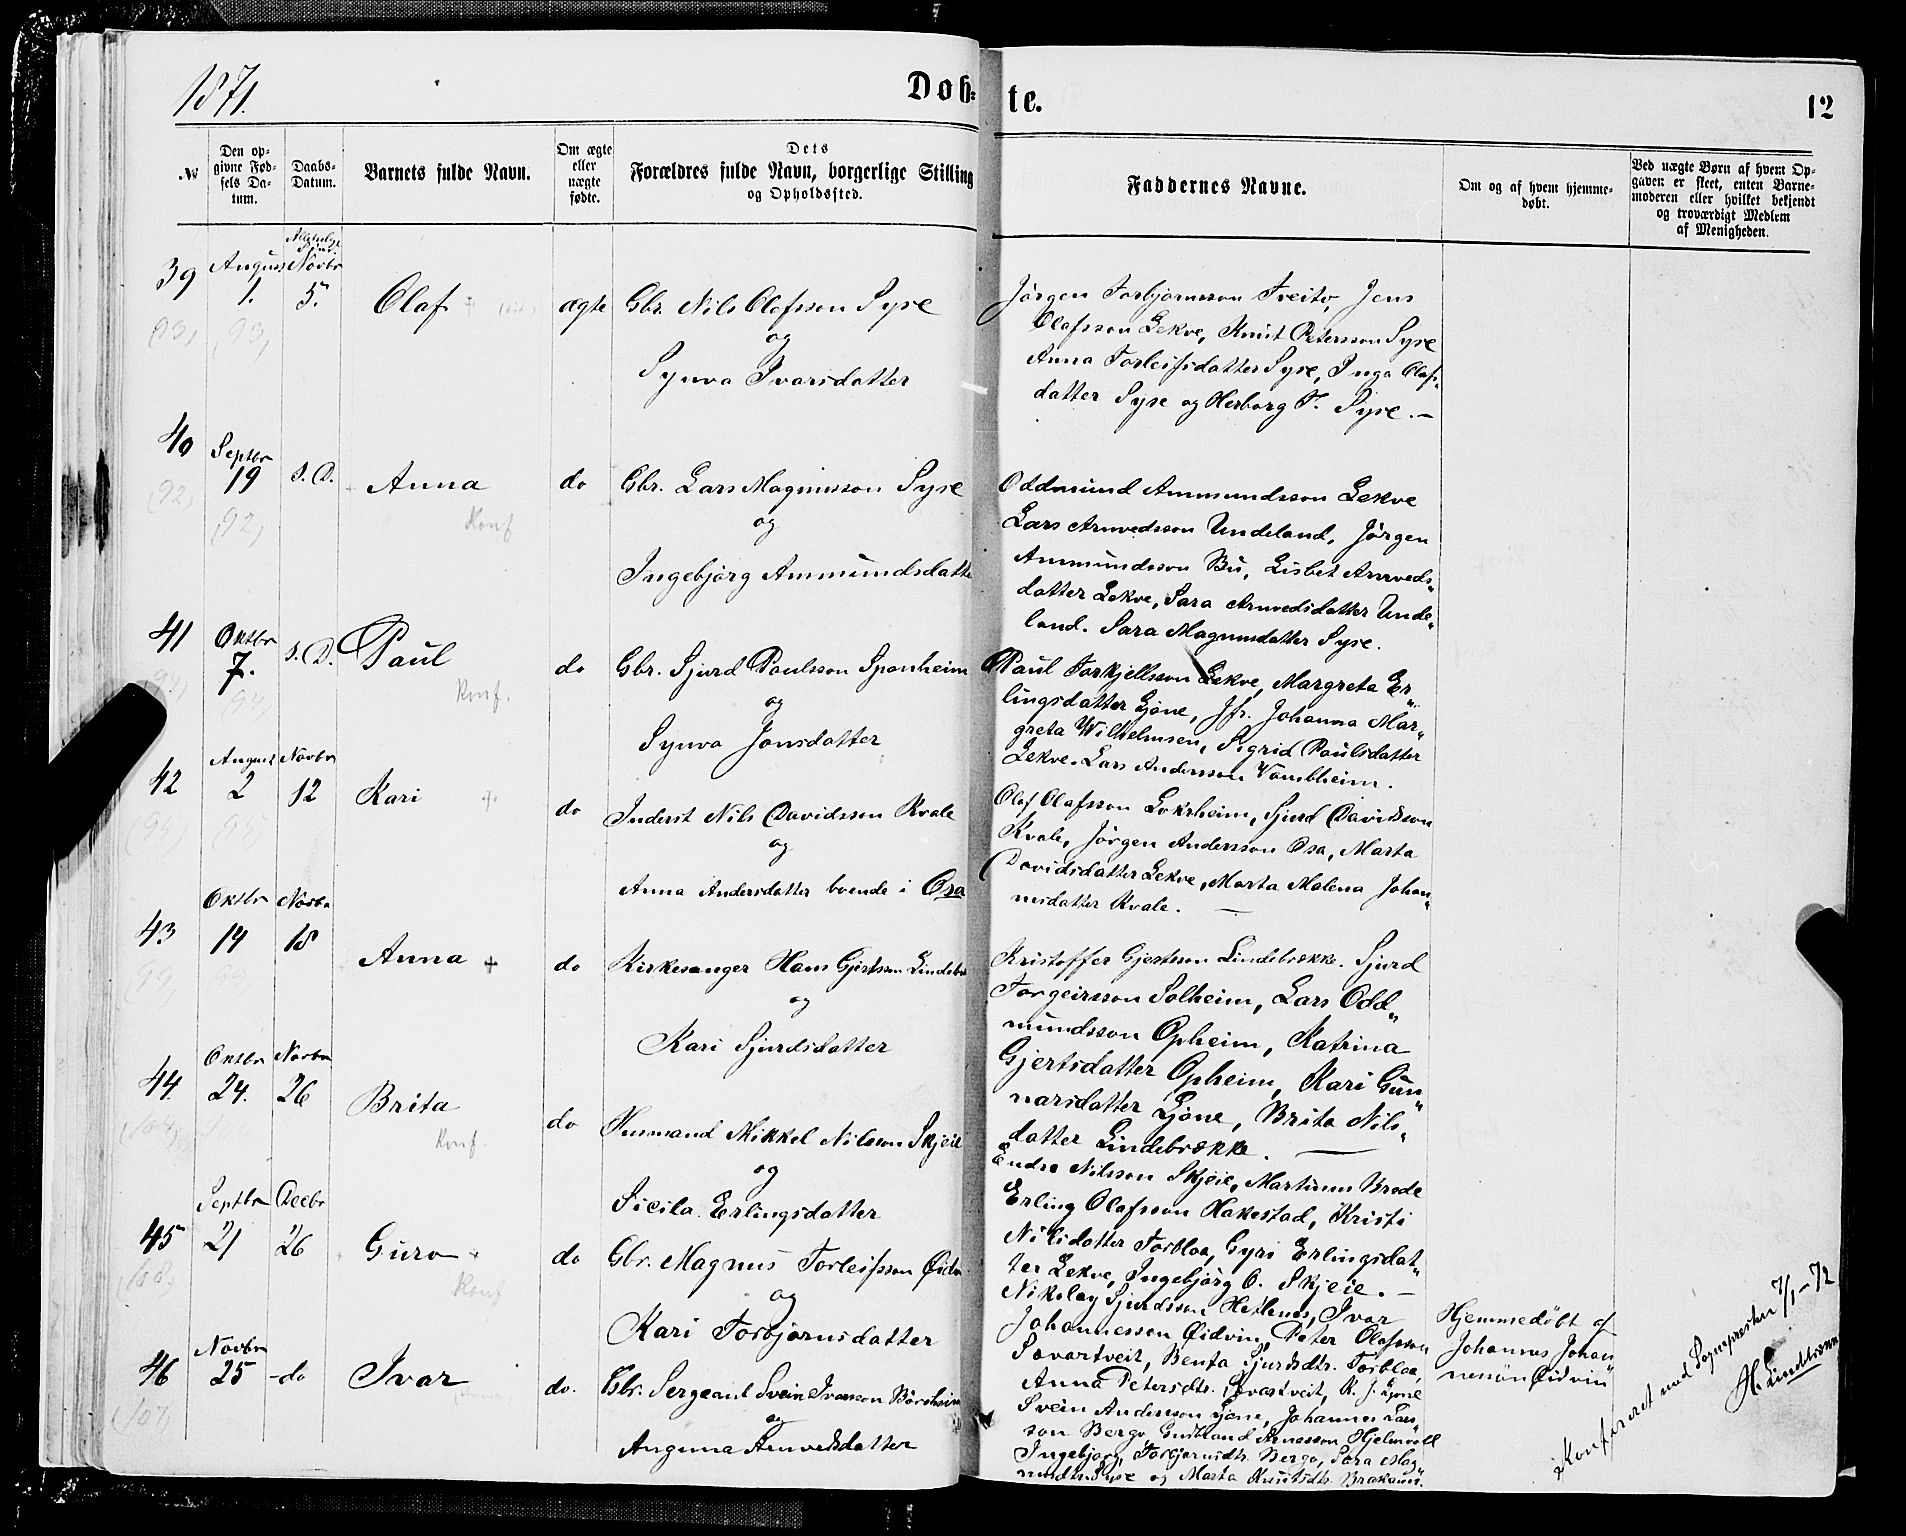 1871.
Døb=
te.
12
№
Den op-
givne Fød-
sels Da-
tum.
Daabs-
Datum.
Barnets fulde Navn.
Om ægte
eller
uægte
fødte.
Dets
Forældres fulde Navn, borgerlige Stilling
og Opholdssted.
Faddernes Navne.
Om og af hvem hjemme-
døbt.
Ved uægte Børn af hvem Op-
gaven er skeet, enten Barne-
moderen eller hvilket bekjendt
og troværdigt Medlem
af Menigheden.
39 August 1. Novbr 5. Olaf ægte Gbr. Nils Olafsson Syse
og
Synva Ivarsdatter
Jørgen Torbjørnsson Tveito, Jens
Olafsson Lekve, Knut Petersson Syse
Anna Torleifsdatter Syse, Inga Olafs-
datter Syse og Herborg T. Syse. —
40 Septbr 19 s. D. Anna do Gbr. Lars Magnusson Syse
Konf
og
Ingebjørg Ammundsdatte
Oddmund Ammundsson Lekve
Lars Arnvedsson Undeland, Jørgen
Ammundsson Bu, Lisbet Arnveds-
datter Lekve, Sara Arnvedsdatter Unde-
land. Sara Magnusdatter Syse.
41 Oktbr 7. s. D. Paul do Gbr. Sjurd Paulsson Sponheim
Konf.
og
Synva Jonsdatter
Paul Torkjellsson Lekve, Margreta Er-
lingsdatter Ljone, Jfr. Johanna Mar-
greta Wilhelmsen, Sigrid Paulsdatter
Lekve. Lars Andersson Vambheim.
42 August 2 Novbr 12 Kari do Inderst Nils Davidsson Kvale
og
Anna Andersdatter boende i Osa
Olaf Olafsson Lokrheim, Sjurd Davidsson
Kvale, Jørgen Andersson Osa, Marta
Davidsdatter Lekve, Marta Malena Johan-
nesdatter Kvale. —
43 Oktbr 14 Novbr 18 Anna do Kirkesanger Hans Gjertsson Lindebr
og
Kari Sjurdsdatter
Kristoffer Gjertsson Lindebrække. Sjurd
Torgeirsson Solheim, Lars Odd-
mundsson Opheim, Katrina
Gjertsdatter Opheim, Kari Gun-
narsdatter Ljone, Brita Nils-
datter Lindebrække. —
44. Oktbr 24. Novbr 26 Brita do Husmand Mikkel Nilsson Skjeie
Konf.
og
Sicila Erlingsdatter
Endre Nilsson Skjeie, Martinus Brode
Erling Olafsson Hakestad, Kristi
Nilsdatter Torblaa, Gyri Erlingsdat-
ter Lekve, Ingebjørg O. Skjeie. —
45 Septbr 21 Decbr 26 Guro do Gbr. Magnus Torleifsson Øidv
Konf
og
Kari Torbjørnsdatter
Nikolay Sjurdsson Hetlenes, Ivar
Johannesson Øidvin, Peter Olafsson
Sævartveit, Benta Sjurdsdtr. Torblaa,
Anna Petersdtr. Sævartveit, K. J. Ljone
Hjemmedøbt af
Johannes Johan-
nessön Øidvin
46 Novbr 25 do Ivar do. Gbr. Sergeant Svein Ivarsson Børsheim
og
Angunna Arnvedsdatter
Svein Andersson Ljone, Johannes Lars-
son Bergo, Gudtland Arnesson Hjelmvoll
Ingebjørg Torbjørnsdtr. Bergo, Sara Mag-
nusdtr Syse og Marta Knutsdtr. Brakanes.
Konfereret med Sognepresten 7/1-72
H. Lindtner